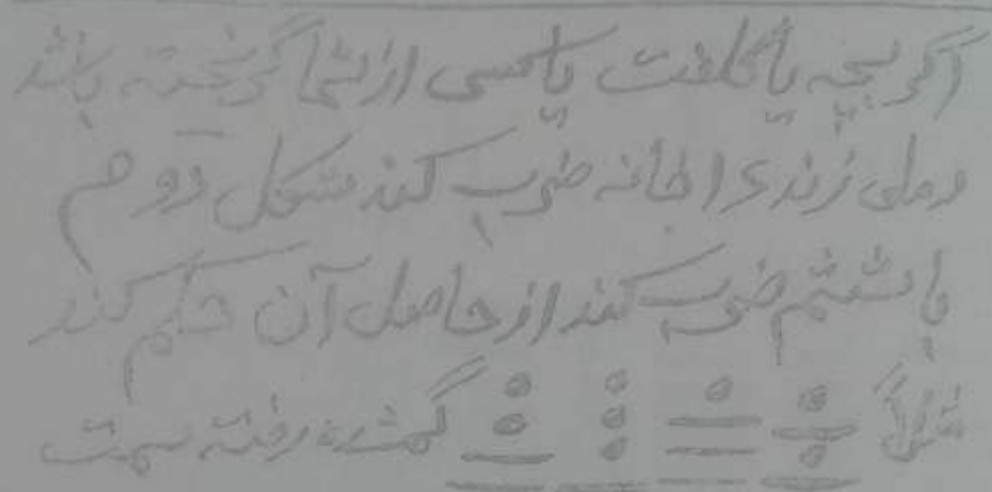 اگر بچه یا کلفت یا کسی از شما گریخته باشد
رملی زند و خانه ضرب کند شکل دوم
با ششم ضرب کند از حاصل آن حکم کند
مثلاً گمشده رفته سمت